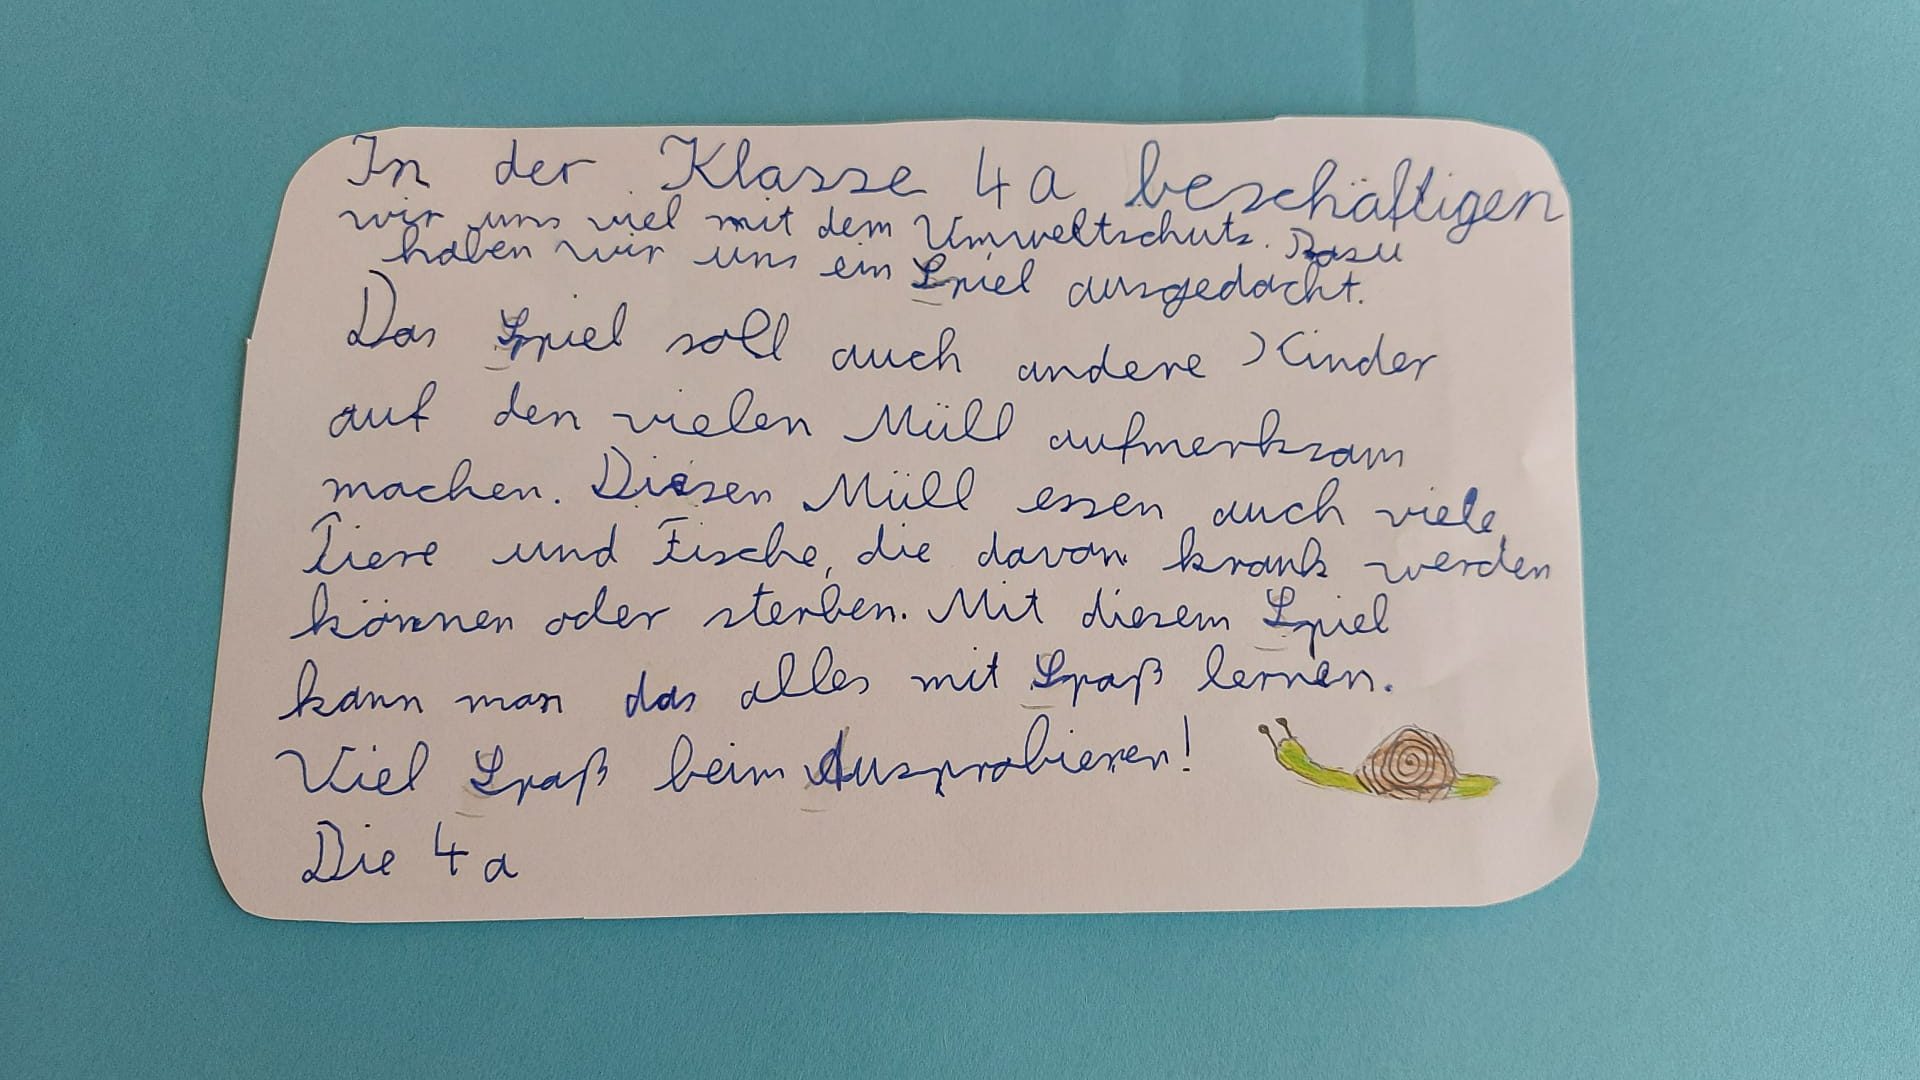 In der Klasse 4a beschäftigen
wir uns viel mit dem Umweltschutz. Dazu
haben wir uns ein Spiel ausgedacht.
Das Spiel soll auch andere Kinder
auf den vielen Müll aufmerksam
machen. Diesen Müll essen auch viele
Tiere und Fische, die davon krank werden
können oder sterben. Mit diesem Spiel
kann man das alles mit Spaß lernen.
Viel Spaß beim Ausprobieren!
Die 4a